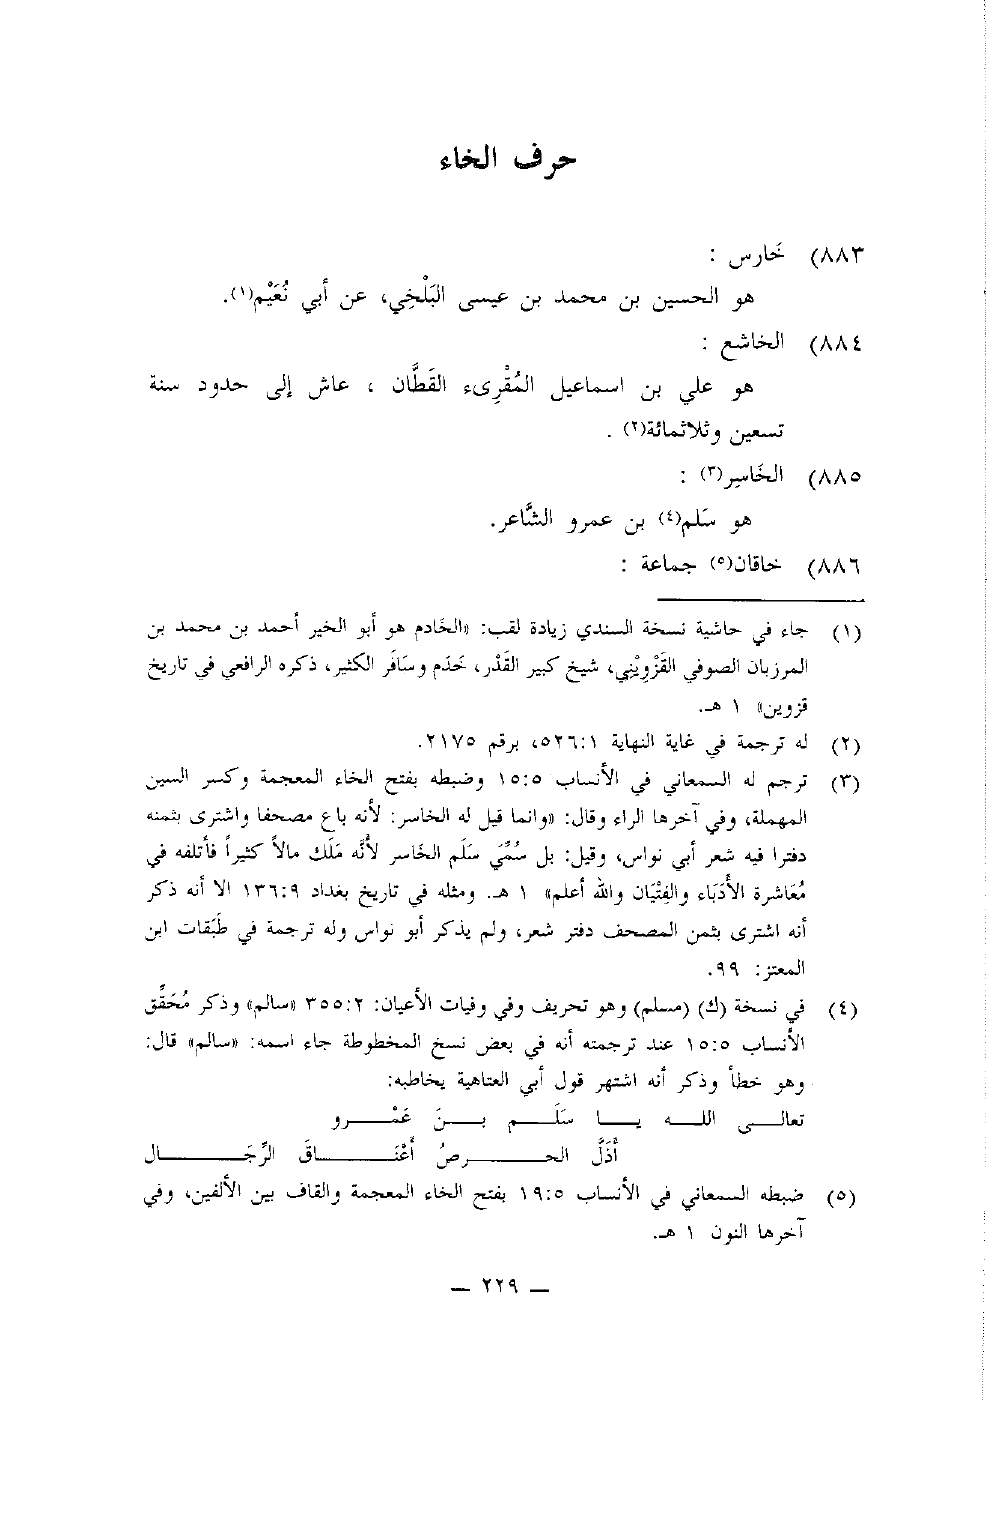 حرف الخاء
٨٨٣) خَارس :
هو الحسين بن محمد بن عيسى البَلْخِي، عن أبي نُعَيْم(١).
٨٨٤) الخاشع :
هو علي بن اسماعيل المُقْرِىء القَطَّان ، عاش إلى حدود سنة
تسعين وثلاثمائة(٢) .
٨٨٥) الخَاسِر(٣) :
هو سَلم(٤) بن عمرو الشَّاعر.
٨٨٦) خاقان(٥) جماعة :
(١) جاء في حاشية نسخة السندي زيادة لقب: «الخَادم هو أبو الخير أحمد بن محمد بن
المرزبان الصوفي القَزْوِيْنِي، شيخ كبير القَدْر، خَدَم وسَافَر الكثير، ذكره الرافعي في تاريخ
قزوين» ١ هـ.
(٢) له ترجمة في غاية النهاية ٥٢٦:١، برقم ٢١٧٥.
(٣) ترجم له السمعاني في الأنساب ١٥:٥ وضبطه بفتح الخاء المعجمة وكسر السين
المهملة، وفي آخرها الراء وقال: «وانما قيل له الخاسر: لأنه باع مصحفا واشترى بثمنه
دفترا فيه شعر أبي نواس، وقيل: بل سُمِّي سَلَم الخَاسر لأَنَّه مَلَك مالاً كثيراً فأتلفه في
مُعَاشرة الأُدَبَاء والفِتْيَان والله أعلم» ١ هـ. ومثله في تاريخ بغداد ١٣٦:٩ الا أنه ذكر
أنه اشترى بثمن المصحف دفتر شعر، ولم يذكر أبو نواس وله ترجمة في طَبَقات ابن
المعتز: ٩٩.
(٤) في نسخة (ك) (مسلم) وهو تحريف وفي وفيات الأعيان: ٣٥٥:٢ «سالم» وذكر مُحَقِّق
الأنساب ١٥:٥ عند ترجمته أنه في بعض نسخ المخطوطة جاء اسمه: «سالم» قال:
وهو خطأ وذكر أنه اشتهر قول أبي العتاهية يخاطبه:
تعالى الله يا سَلَم بنَ عَمْرو
أَذَلَّ الحرصُ أَعْنَاقَ الرِّجَال
(٥) ضبطه السمعاني في الأنساب ١٩:٥ بفتح الخاء المعجمة والقاف بين الألفين، وفي
آخرها النون ١ هـ.
— ٢٢٩ —